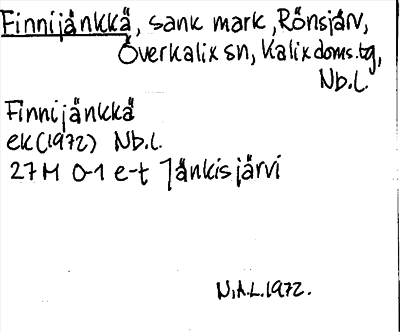 Finnijänkkä, sank mark, Rönsjärv,
Överkalix sn, Kalix doms.tg,
Nb.l.
Finnijänkkä
ek(1972) Nb.l.
27M 0-1 e-t Jänkisjärvi
N.A.L.1972.